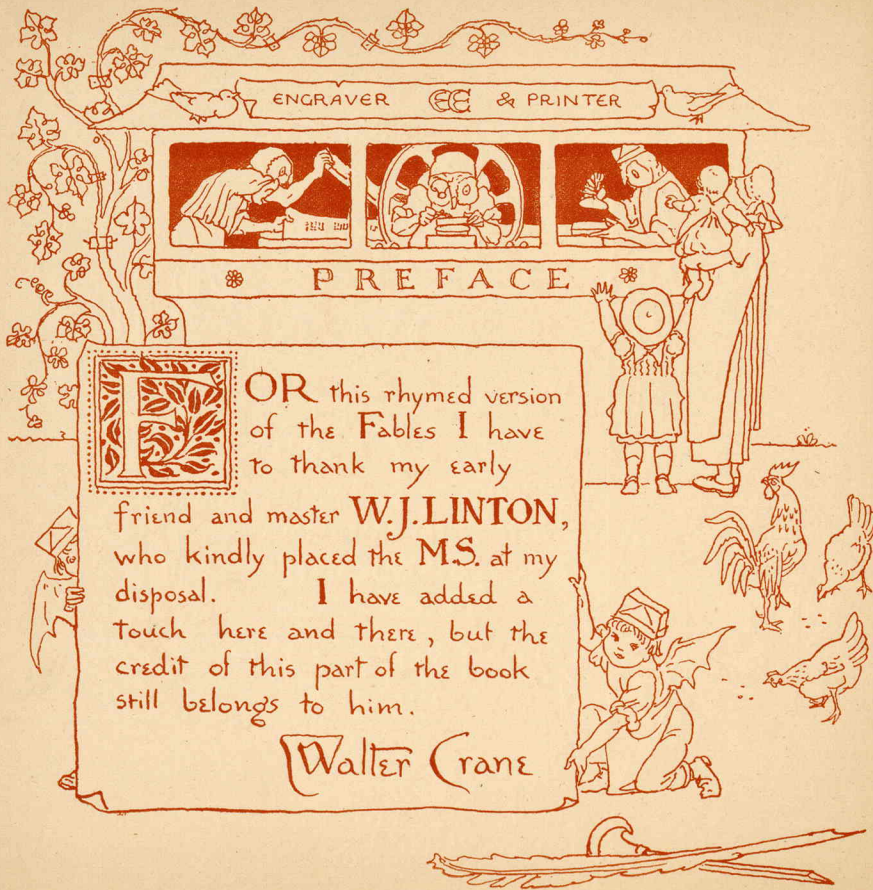 ENGRAVER EE & PRINTER
PREFACE
FOR this rhymed version
of the Fables I have
to thank my early
friend and master W.J.LINTON,
who kindly placed the M.S. at my
disposal. I have added a
touch here and there, but the
credit of this part of the book
still belongs to him.
Walter Crane